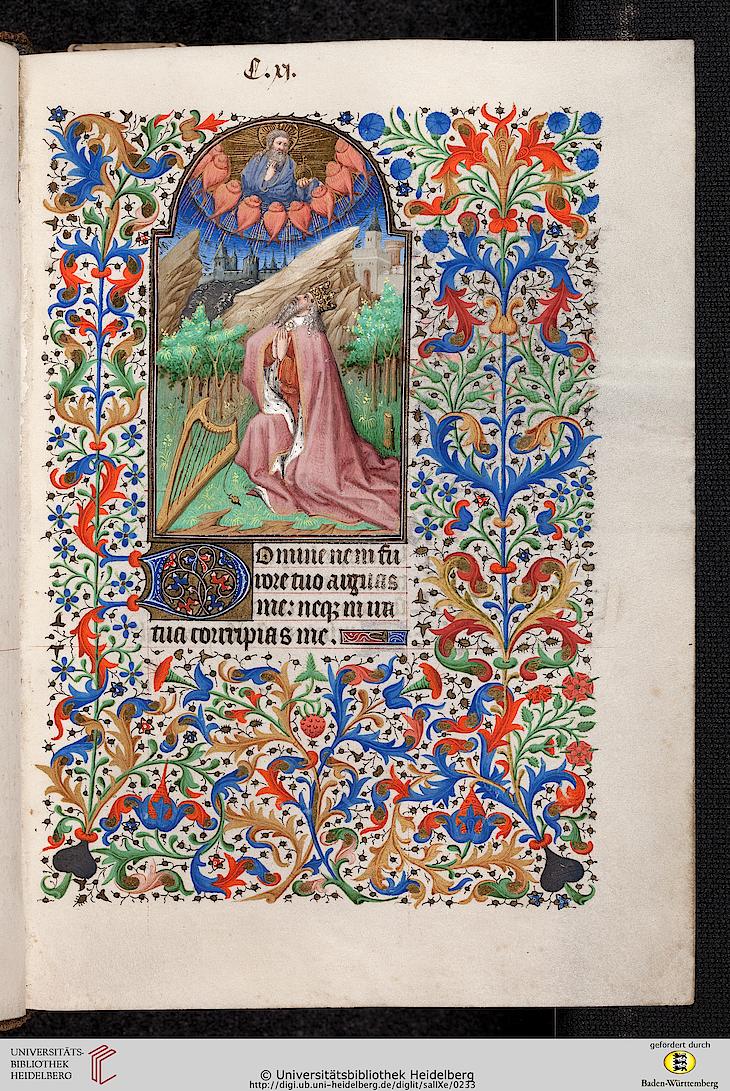 C.xj.
Domine ne in fu
rore tuo arguas
me: neqꝫ in ira
tua corripias me.
UNIVERSITÄTS-
BIBLIOTHEK
HEIDELBERG
© Universitätsbibliothek Heidelberg
http://digi.ub.uni-heidelberg.de/diglit/salIXe/0233
gefördert durch
Baden-Württemberg